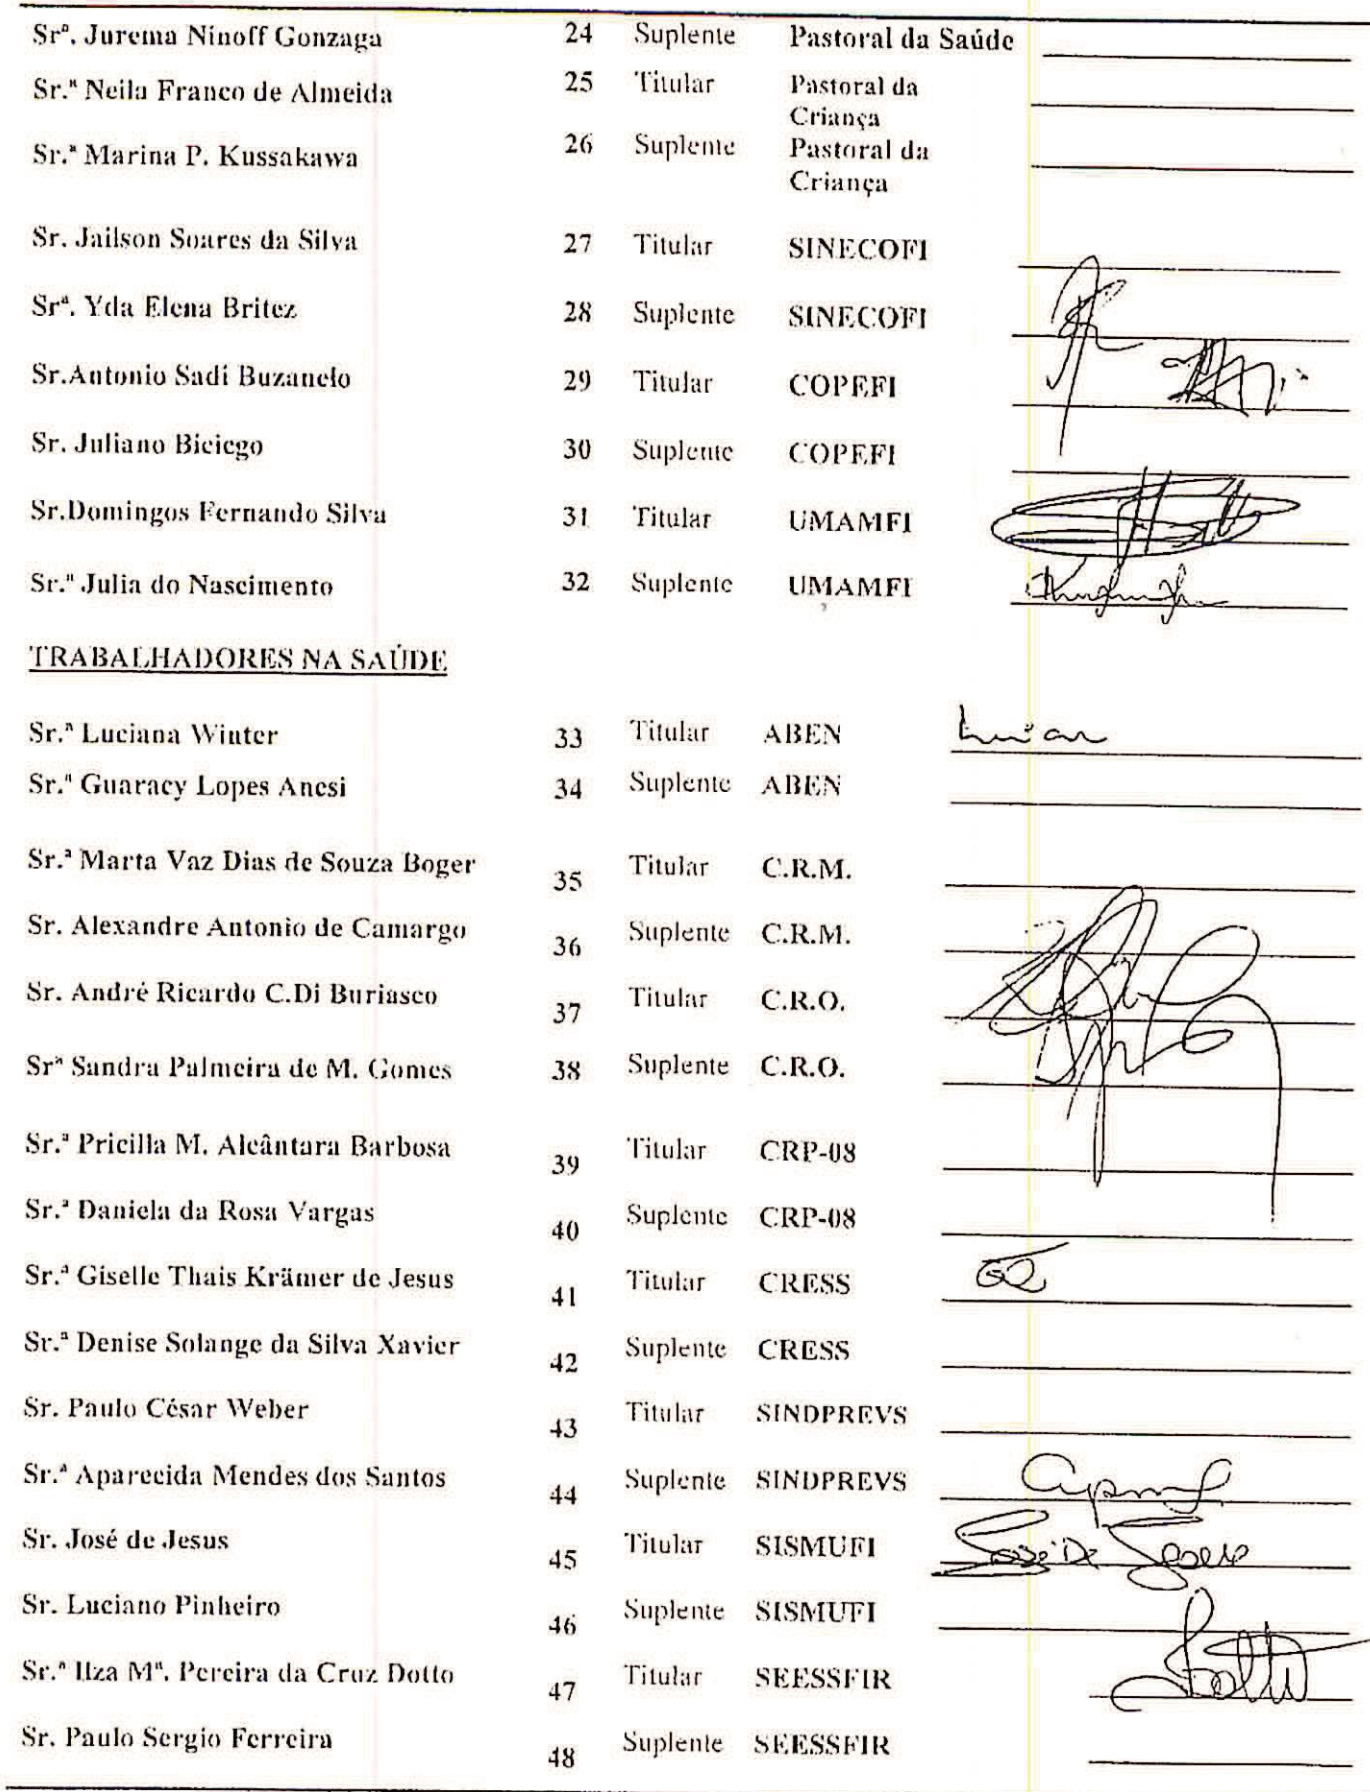 Srª. Jurema Ninoff Gonzaga 24 Suplente Pastoral da Saúde
Sr.ª Neila Franco de Almeida 25 Titular Pastoral da
Criança
Sr.ª Marina P. Kussakawa 26 Suplente Pastoral da
Criança
Sr. Jailson Soares da Silva 27 Titular SINECOFI
Srª. Yda Elena Britez 28 Suplente SINECOFI
Sr.Antonio Sadi Buzanelo 29 Titular COPEFI
Sr. Juliano Biciego 30 Suplente COPEFI
Sr.Domingos Fernando Silva 31 Titular UMAMFI
Sr.ª Julia do Nascimento 32 Suplente UMAMFI
TRABALHADORES NA SAÚDE
Sr.ª Luciana Winter 33 Titular ABEN
Sr.ª Guaracy Lopes Anesi 34 Suplente ABEN
Sr.ª Marta Vaz Dias de Souza Boger 35 Titular C.R.M.
Sr. Alexandre Antonio de Camargo 36 Suplente C.R.M.
Sr. André Ricardo C.Di Buriasco 37 Titular C.R.O.
Srª Sandra Palmeira de M. Gomes 38 Suplente C.R.O.
Sr.ª Pricilla M. Alcântara Barbosa 39 Titular CRP-08
Sr.ª Daniela da Rosa Vargas 40 Suplente CRP-08
Sr.ª Giselle Thais Krämer de Jesus 41 Titular CRESS
Sr.ª Denise Solange da Silva Xavier 42 Suplente CRESS
Sr. Paulo César Weber 43 Titular SINDPREVS
Sr.ª Aparecida Mendes dos Santos 44 Suplente SINDPREVS
Sr. José de Jesus 45 Titular SISMUFI José De Jesus
Sr. Luciano Pinheiro 46 Suplente SISMUFI
Sr.ª Ilza Mª. Pereira da Cruz Dotto 47 Titular SEESSFIR
Sr. Paulo Sergio Ferreira 48 Suplente SEESSFIR